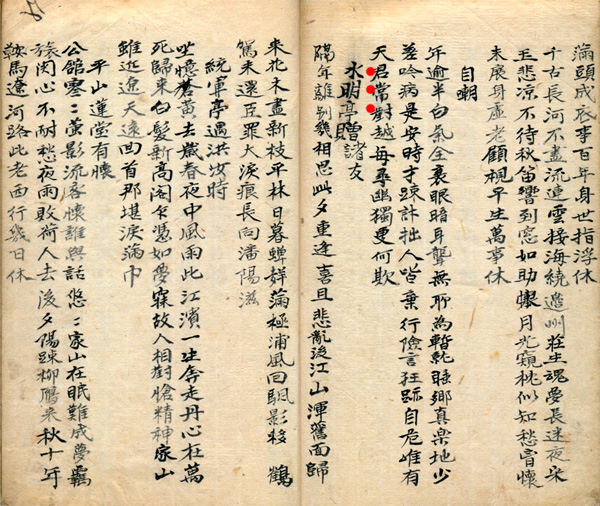 滿頭成底事百年身世指浮休
千古長河不盡流連雲接海繞遼州莊生魂夢長迷夜宋
玉悲凉不待秋笛響到窓如助恨月光窺枕似知愁冐懷
未展身虛老顧平生萬事休
自嘲
年逾半百氣全衰眼暗耳聾無所為暫就睡鄉真樂地少
差呤病是安時才踈計拙人皆棄行險言狂跡自危唯有
天君常對越每尋幽獨更何欺
水明亭贈諸友
隔年離別幾相思此夕重逢喜且悲亂後江山渾舊面歸
來花木盡新枝平林日暮蟬滿極浦風回颿影移鶴
駕未還臣罪大淚痕長向潘陽滋
統軍亭遇洪汝時
坐憶去歲春夜中風雨此江濱一生奔走丹心在萬
死歸來白髮新高閣乍憑如夢寐故人相對愴精神家山
雖近遼天遠回首那堪淚滿巾
平山蓮堂有懷
公館寥〻螢影流客懷誰與話悠〻家山在眠難成夢羈
旅関心不耐愁夜雨敗荷人去後夕陽踈柳鴈來秋十年
鞍馬遼河路此老西行幾日休